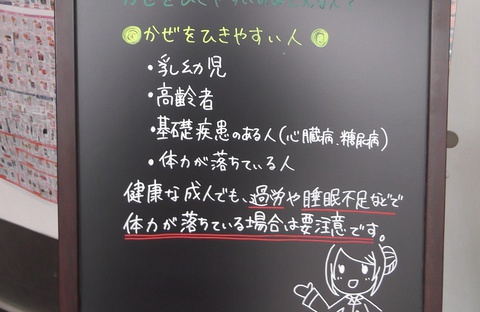 かぜをひきやすい人
・乳幼児
・高齢者
・基礎疾患のある人(心臓病、糖尿病)
・体力が落ちている人
健康な成人でも、過労や睡眠不足などで
体力が落ちている場合は要注意です。